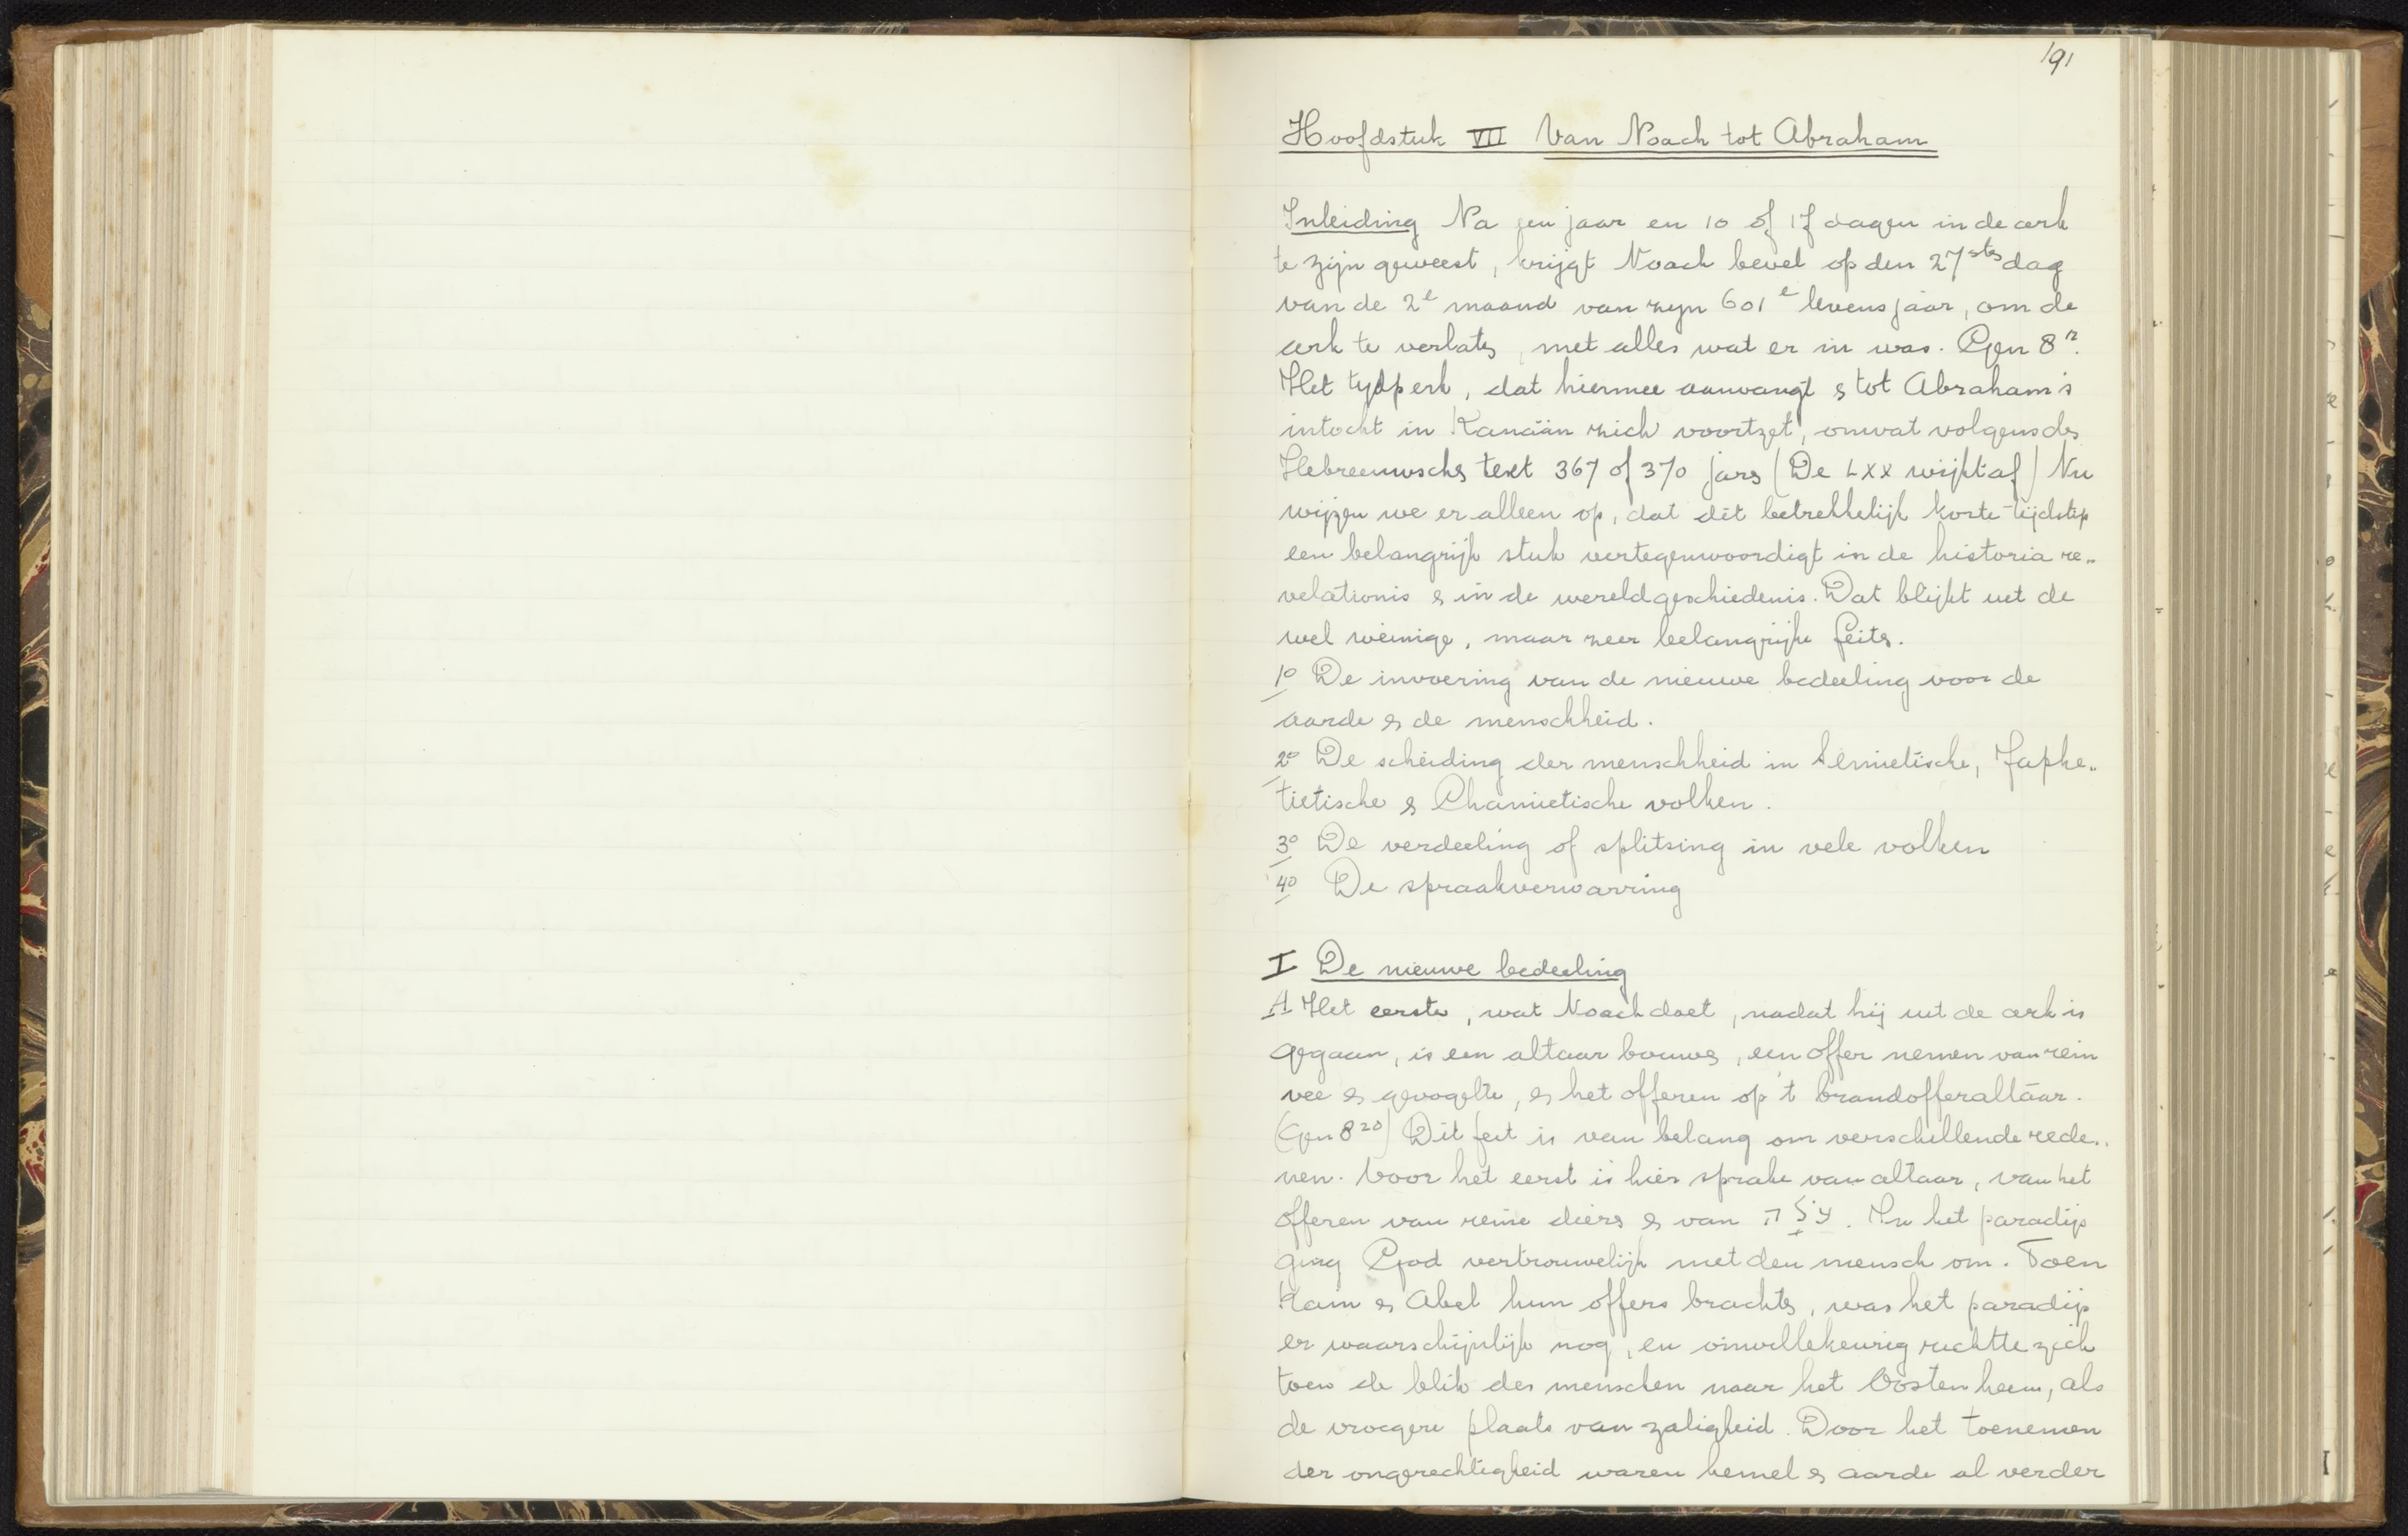 191
Hoofdstuk VII Van Noach tot Abraham
Inleiding Na een jaar en 10 of 17 dagen in de ark
te zijn geweest, krijgt Noach bevel op den 27sten dag
van de 2e maand van zijn 601e levensjaar, om de
ark te verlaten, met alles wat er in was. Gen 8
Het tijdperk, dat hiermee aanvangt en tot Abraham's
intocht in Kanaän zich voortzet, omvat volgens den
Hebreeuwschen text 367 of 370 jaren (De LXX wijkt af) Nu
wijzen we er alleen op, dat dit betrekkelijk korte tijdstip
een belangrijk stuk vertegenwoordigt in de historia re„
velationis en in de wereldgeschiedenis. Dat blijkt uit de
wel weinige, maar zeer belangrijke feiten.
1o De invoering van de nieuwe bedeeling voor de
aarde en de menschheid.
2o De scheiding der menschheid in Semietische, Japhe„
tietische en Chamietische volken.
3o De verdeeling of splitsing in vele volken
4o De spraakverwarring
I De nieuwe bedeeling
A Het eerste, wat Noach doet, nadat hij uit de ark is
gegaan, is een altaar bouwen, een offer nemen van rein
vee en gevogelte, en het offeren op 't brandofferaltaar.
(Gen 8 20) Dit feit is van belang om verschillende rede„
nen. Voor het eerst is hier sprake van altaar, van het
offeren van reine dieren en van עֹלָה. In het paradijs
ging God vertrouwelijk met den mensch om. Toen
Kaïn en Abel hun offers brachten, was het paradijs
er waarschijnlijk nog, en onwillekeurig richtte zich
toen de blik des menschen naar het Oosten heen, als
de vroegere plaats van zaligheid. Door het toenemen
der ongerechtigheid waren hemel en aarde al verder